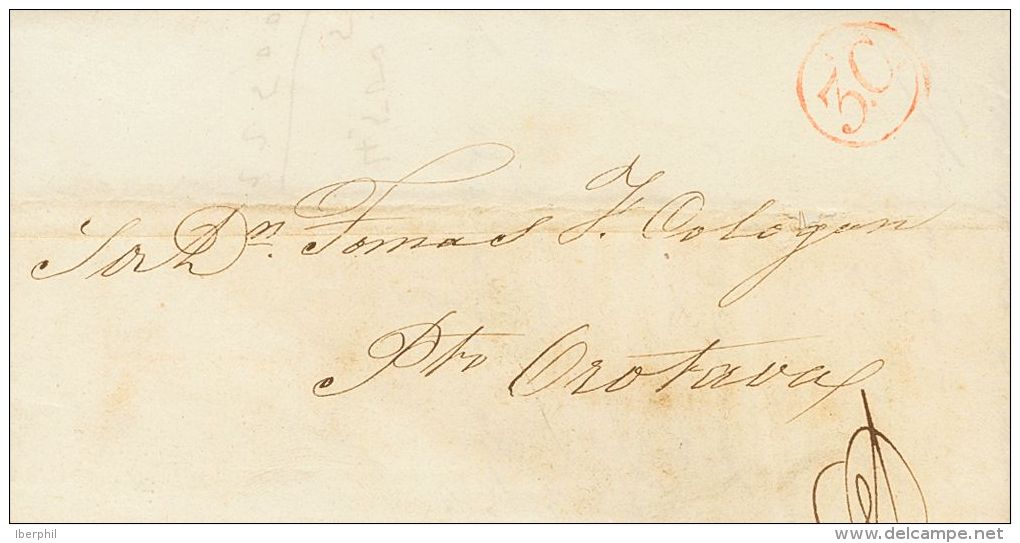 3.C
Sor Dn. Tomas F. Cologan
Pto Orotava
Iberphil
delcampe.net